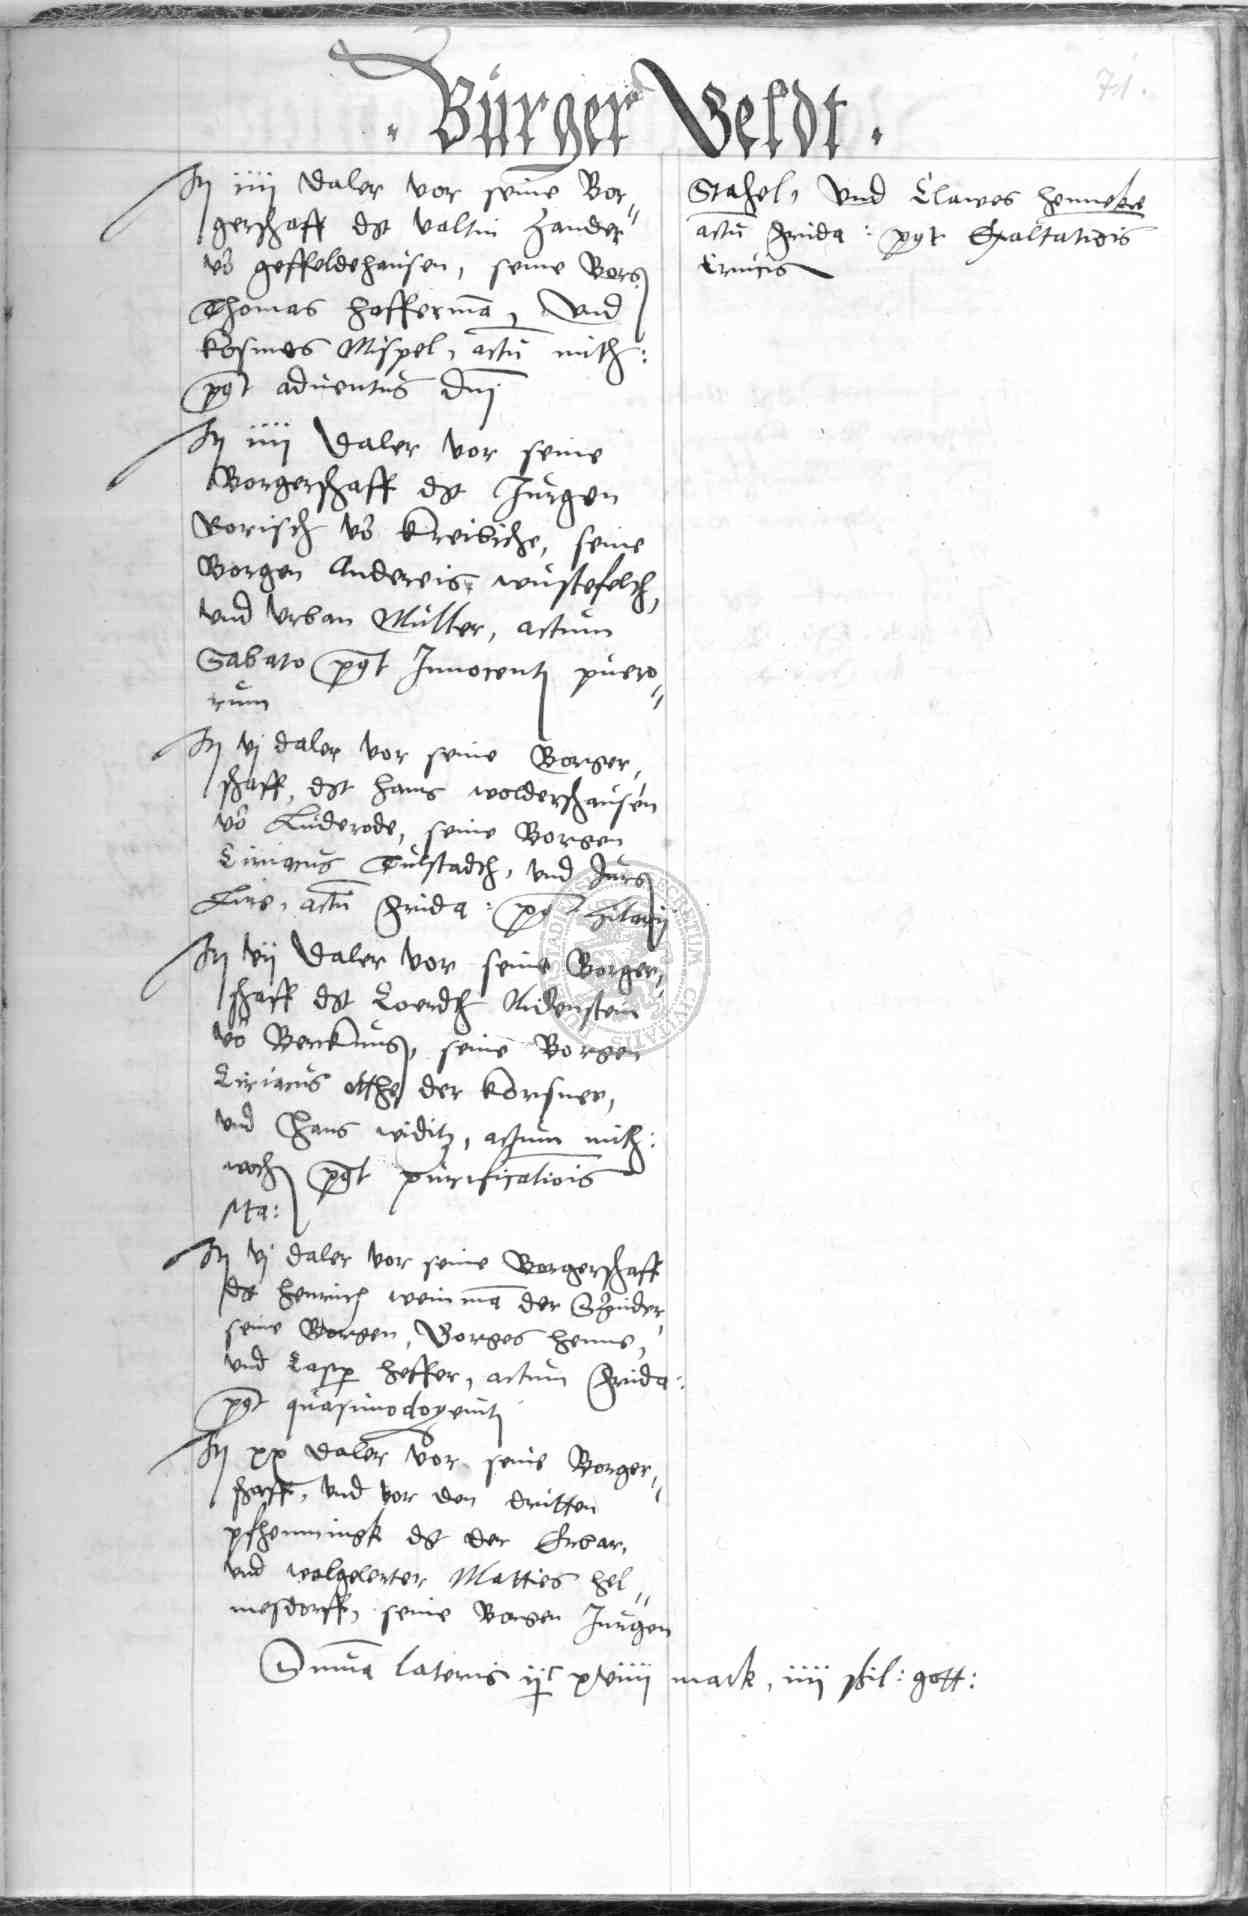 71.
. Bürger Geldt .
Itj iiij daler vor seine Bor„
gerschaff dt valtin Zander
vō geffeldehausen, seine Borg
Thomas Hoffermā, Vnd
Kosmes Mispel, actū mith:
pqt aduentus dnj
Itj iiij Daler vor seine
Borgerschaff dt Jurgen
Rorisch vō Kreibiche, seine
Borgen Andereis wustefelth,
vnd vrban Müller, actum
Sabato pqt Innocentj puero„
rum
Itj vj daler vor seine Borger„
schaff, dt Hans woldershausen
vō Luderode, seine Borgen
Ciriacus Tulstadth, vnd Jurg
actū Frida: pq Hilarij
Itj vij Daler vor seine Borger„
schaff dt Coerdth Nidenstein
vō seine Borgen
Ciriacus otthe der Korsner,
vnd Hans widitz, actum mith:
woch pqt purificatiois
Ma:
Itj vj daler vor seine Borgerschaff
dt Henrich weinmā der
seine Borgen, Borges Henne,
vnd Casp Heffer, actum Frida:
pqt quasimodogenitj
Itj xx daler vor seine Borger„
schaff, vnd vor den dritten
pfhenningk dt der Erbar,
vnd wolgelerter Matties Hel„
mesdorff, seine Borgen Jurgen
Stahel, Vnd Clawes Henneke
actū Frida: pqt Exaltatiois
Crucis
Sum̄a lateris ijc xviiij mark, iiij schil: gott:
SECRETUM CIVITATIS